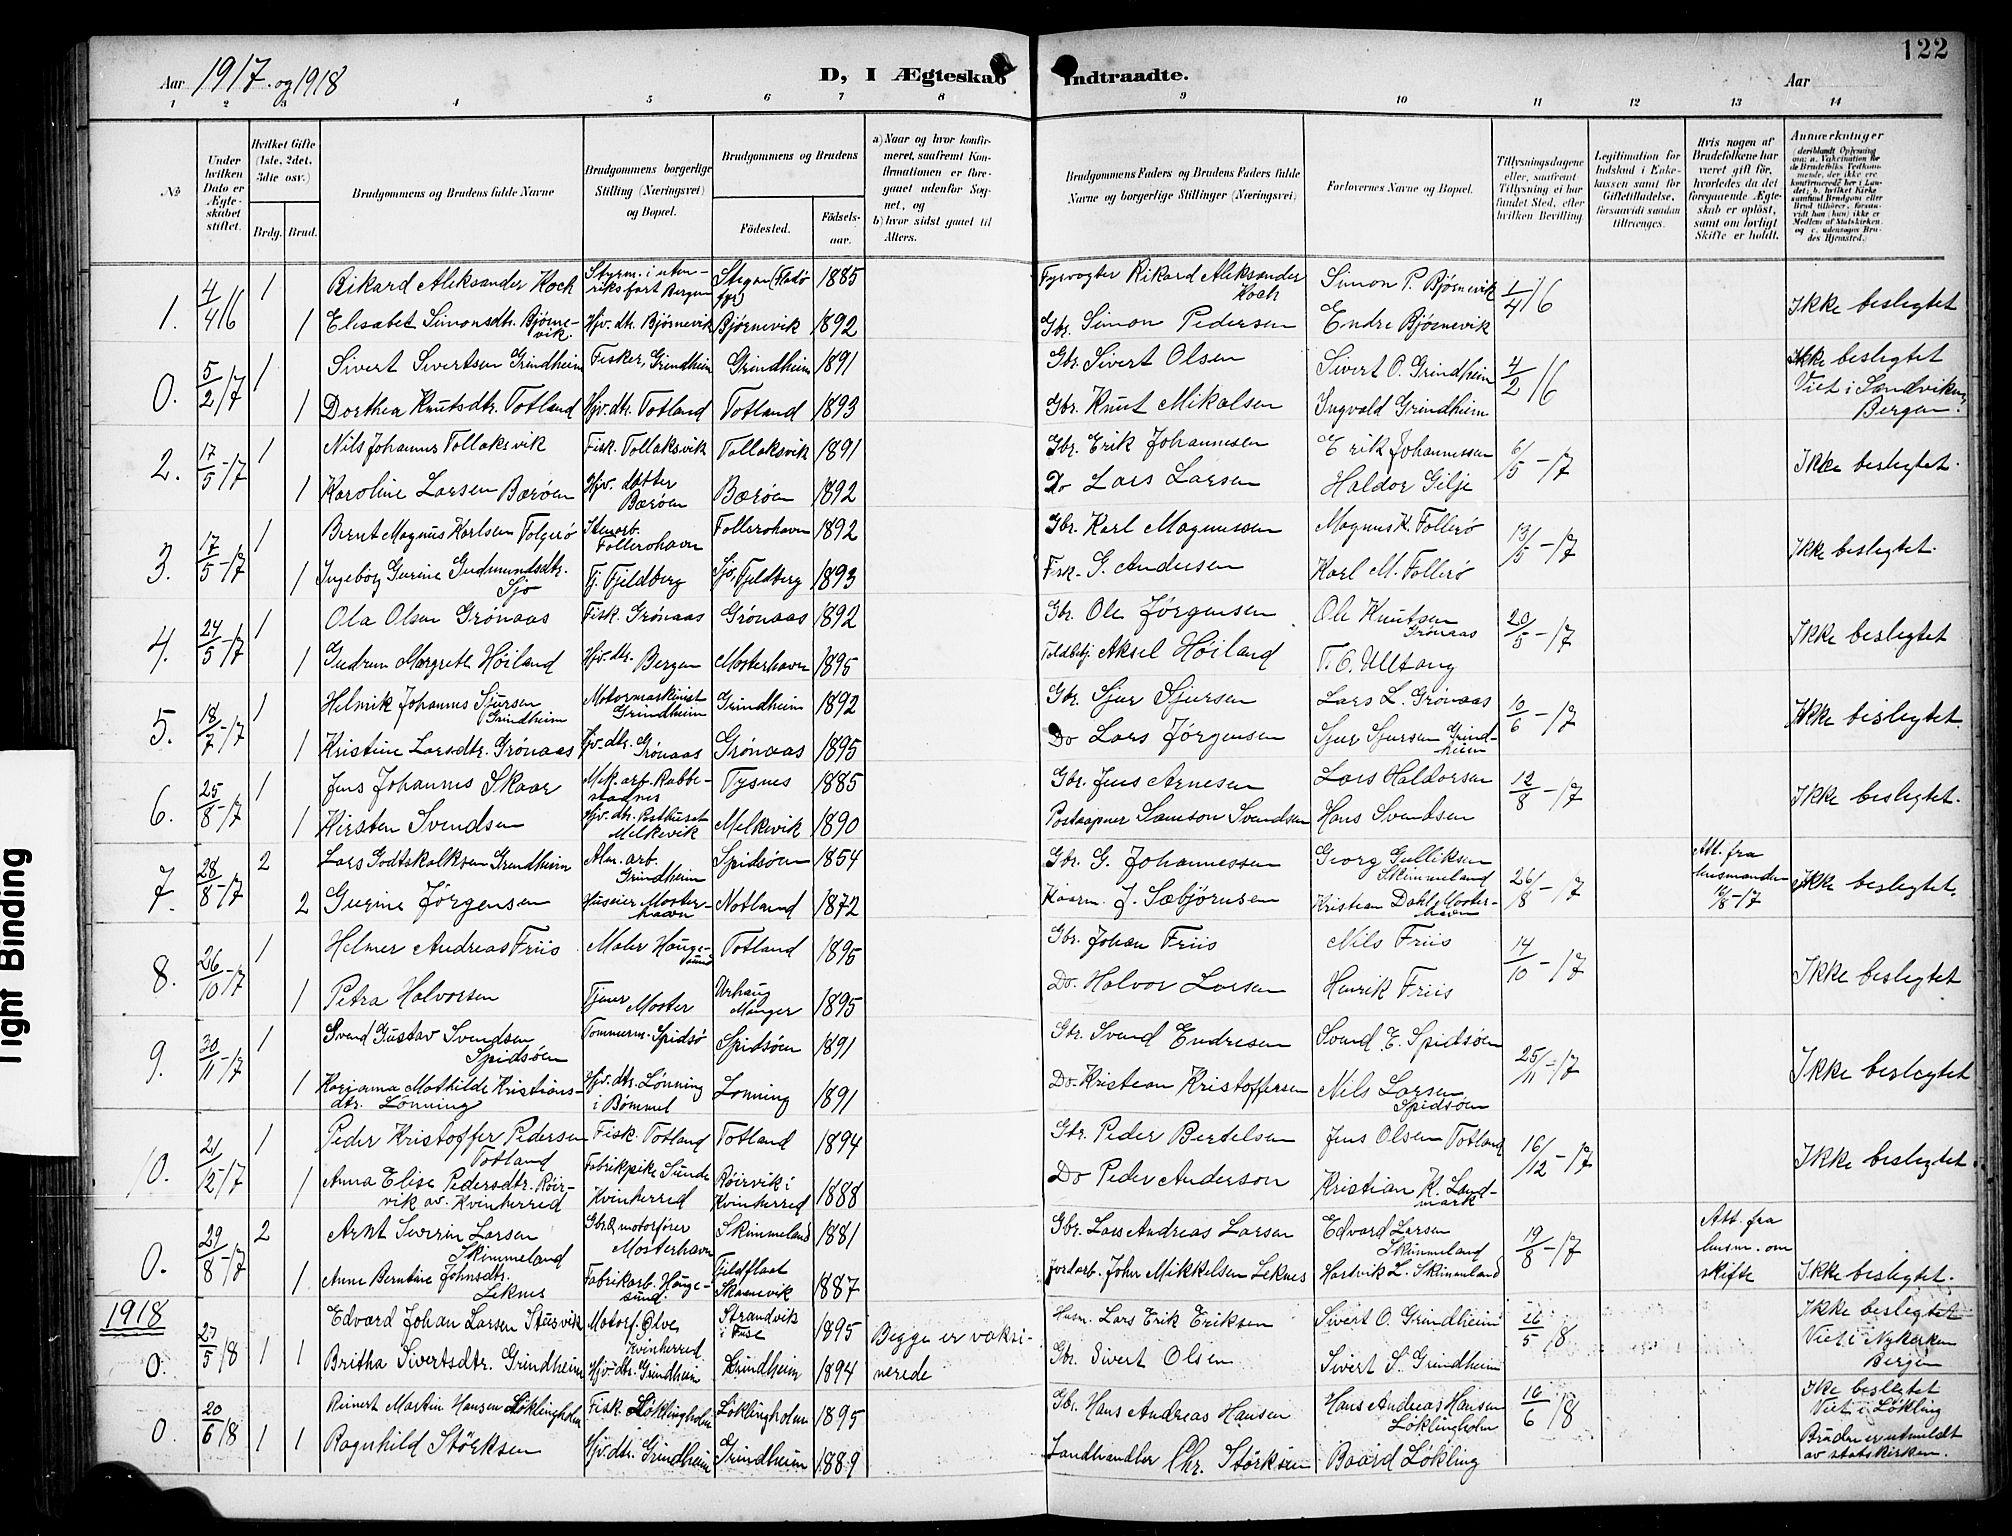 122
Aar 1917 og 1918
D, I Ægteskab Indtraadte.
Aar
1 2 3 4 5 6 7 8 9 10 11 12 13 14
No
Under hvilken Dato er Ægteskabet stiftet.
Hvilket Gifte (1ste, 2det, 3die osv.)
Brdg. Brud.
Brudgommens og Brudens fulde Navne
Brudgommens borgerlige Stilling (Næringsvei) og Bopæl.
Brudgommens og Brudens
Födested.
Födselsaar.
a) Naar og hvor konfirmeret, saafremt Konfirmationen er foregaaet udenfor Sognet, og
b) hvor sidst gaaet til Alters.
Brudgommens Faders og Brudens Faders fulde Navne og borgerlige Stillinger (Næringsvei)
Forlovernes Navne og Bopæl.
Tillysningsdagene eller, saafremt Tillysning ei har fundet Sted, efter hvilken Bevilling.
Legitimation for Indskud i Enkekassen samt for Giftetilladelse, forsaavidt saadan tiltrænges.
Hvis nogen af Brudefolkene har været gift før, hvorledes da det foregaaende Ægteskab er opløst, samt om lovligt Skifte er holdt.
Anmærkninger
1. 4/4 16 1 Rikard Aleksander Koch Styrm. i utenriksfart Bergen Stegen (Flatø fyr) 1885 Fyrvogter Rikard Aleksander Koch Simon P. Bjørnevik 1/4 16 Ikke beslegtet
1 Elisabet Simonsdtr. Bjørnevik. Hjv. dtr. Bjørnevik Bjørnevik 1892 Gbr. Simon Pedersen Endre Bjørnevik
0. 5/2 17 1 Sivert Sivertsen Grindheim Fisker, Grindheim Grindheim 1891 Gbr. Sivert Olsen Sivert O. Grindheim 4/2 16 Ikke beslegtet Viet i Sandviken, Bergen.
1 Dorthea Knutsdtr. Totland Hjv. dtr. Totland Totland 1893 Gbr. Knut Mikalsen Ingvald Grindheim
2. 17/5-17 1 Nils Johannes Tollaksvik Fisk. Tollaksvik Tollaksvik 1891 Gbr. Erik Johannesen Erik Johannessen 6/5-17 Ikke beslegtet.
1 Karoline Larsen Barøen Hjv. datter Barøen Barøen 1892 Do Lars Larsen Haldor Gilje
3. 17/5-17 1 Bernt Magnus Karlsen Folgerø Stenarb. Follerohavn Follerohavn 1892 Gbr. Karl Magnussen Magnus K. Follerø 13/5-17 Ikke beslegtet.
1 Ingeborg Gurine Gudmundsdtr. Sjo Tj. Fjeldberg Sjo, Fjeldberg 1893 Fisk. G. Andersen Karl M. Follerø
4. 24/5-17 1 Ola Olsen Grønaas Fisk. Grønaas Grønaas 1892 Gbr. Ole Jørgensen Ole Knutsen Grønaas 20/5-17 Ikke beslegtet
1 Gudrun Margrete Høiland Hjv. dtr. Bergen Mosterhavn 1895 Toldbetj. Aksel Høiland T. O. Ulltang
5. 18/7-17 1 Helmik Johannes Sjursen Grindheim Motormaskinist Grindheim Grindheim 1892 Gbr. Sjur Sjursen Lars L. Grønaas 10/6-17 Ikke beslegtet.
1 Kristine Larsdtr. Grønaas Hjv. dtr. Grønaas Grønaas 1895 Do Lars Jørgensen Sjur Sjursen Grindheim
6. 25/8-17 1 Jens Johannes Skaar Mek. arb. Rabbestadnes Tysnes 1885 Gbr. Jens Arnesen Lars Haldorsen 12/8-17 Ikke beslegtet.
1 Kirsten Svendsen Hjv. dtr. Posthuset Melkevik Melkevik 1890 Postaapner Samson Svendsen Hans Svendsen
7. 28/8-17 2 Lars Godtskalksen Grindheim Alm. arb. Grindheim Spidsøen 1854 Gbr. G. Johannessen Georg Gulliksen Skimmeland 26/8-17 Att. fra husmanden 16/8-17 Ikke beslegtet.
2 Gurine Jørgensen Huseier Mosterhavn Notland 1872 Kaarm. J. Sæbjørnsen Kristian Dahl Mosterhavn
8. 26/10-17 1 Helmer Andreas Friis Maler Haugesund Totland 1895 Gbr. Johan Friis Nils Friis 14/10-17 Ikke beslegtet
1 Petra Halvorsen Tjener Moster Urhaug Manger 1895 Do. Halvor Larsen Henrik Friis
9. 30/11-17 1 Svend Gustav Svendsen Spidsøen Tømmerm. Spidsø Spidsøen 1891 Gbr. Svend Endresen Svend E. Spidsøen 25/11-17 Ikke beslegtet
1 Karianna Mathilde Kristiansdtr. Lønning Hjv. dtr. Lønning i Bømmel Lønning 1891 Do. Kristian Kristoffersen Nils Larsen Spidsøen
10. 21/12-17 1 Peder Kristoffer Pedersen Totland Fisk. Totland Totland 1894 Gbr. Peder Bertelsen Jens Olsen Totland 16/12-17 Ikke beslegtet.
1 Anna Elise Pedersdtr. Røirvik av Kvinherred Fabrikpike Sunde Kvinherred Røirvik i Kvinherred 1888 Do Peder Anderson Kristian K. Landmark
0. 29/8-17 2 Arnt Severin Larsen Skimmeland Gbr. & motorfører Mosterhavn Skimmeland 1881 Gbr. Lars Andreas Larsen Edvard Larsen Skimmeland 19/8-17 Att. fra husm. om skifte Ikke beslegtet.
1 Anne Berntine Johnsdtr. Leknes Fabrikarb. Haugesund Skaanevik 1887 Jordarb. John Mikkelsen Leknes Hartvik L. Skimmeland
1918
0. 27/5 18 1 1 Edvard Johan Larsen Motorf. Ølve Kvinherred Strandvik i Fuse 1895 Begge er vaksinerede Husm. Lars Erik Eriksen Sivert O. Grindheim 26/5 18 Ikke beslegtet Viet i Nykirken Bergen
Britha Sivertsdtr. Grindheim Hjv. dtr. Grindheim Grindheim 1894 Gbr. Sivert Olsen Sivert S. Grindheim
0. 20/6 18 1 1 Reinert Martin Hansen Løklingholm Fisk. Løklingholm Løklingholm 1895 Gbr. Hans Andreas Hansen Hans Andreas Hansen Løklingholm 16/6 18 Ikke beslegtet Viet i Løkling
Ragnhild Størksen Hjv. dtr. Grindheim Grindheim 1889 Landhandler Chr. Størksen Baard Løkling Bruden er utmeldt av statskirken.
Tight Binding